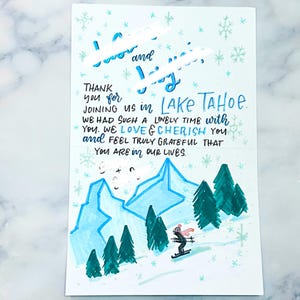 and
THANK
YOU for
JOINING US in LAKE TAHOE
WE HAD SUCH A LOVELY TIME with
YOU. WE LOVE & CHERISH YOU
and FEEL TRULY GRATEFUL THAT
YOU ARE in OUR LIVES.